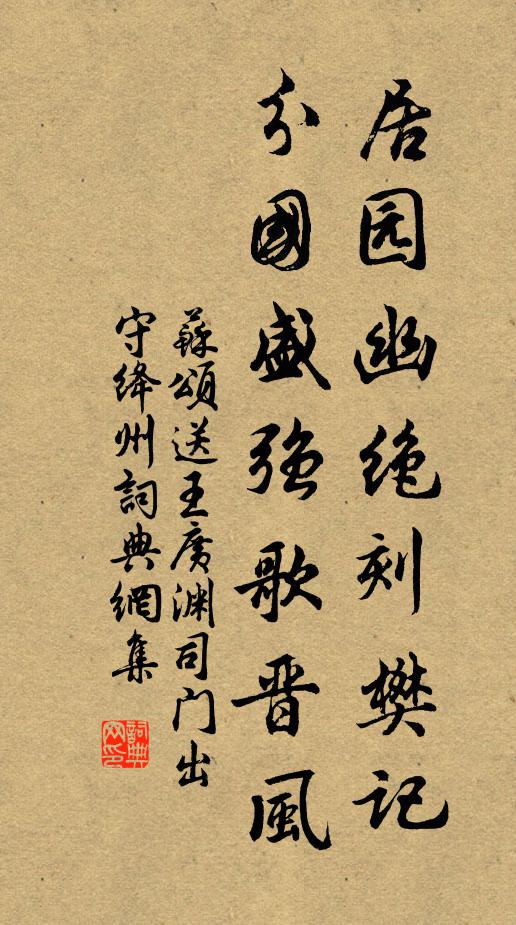 居园幽绝刻樊记
分國盛强歌晋風
蘇頌送王廣渊司门出
守绛州詞典網集
詞典网印